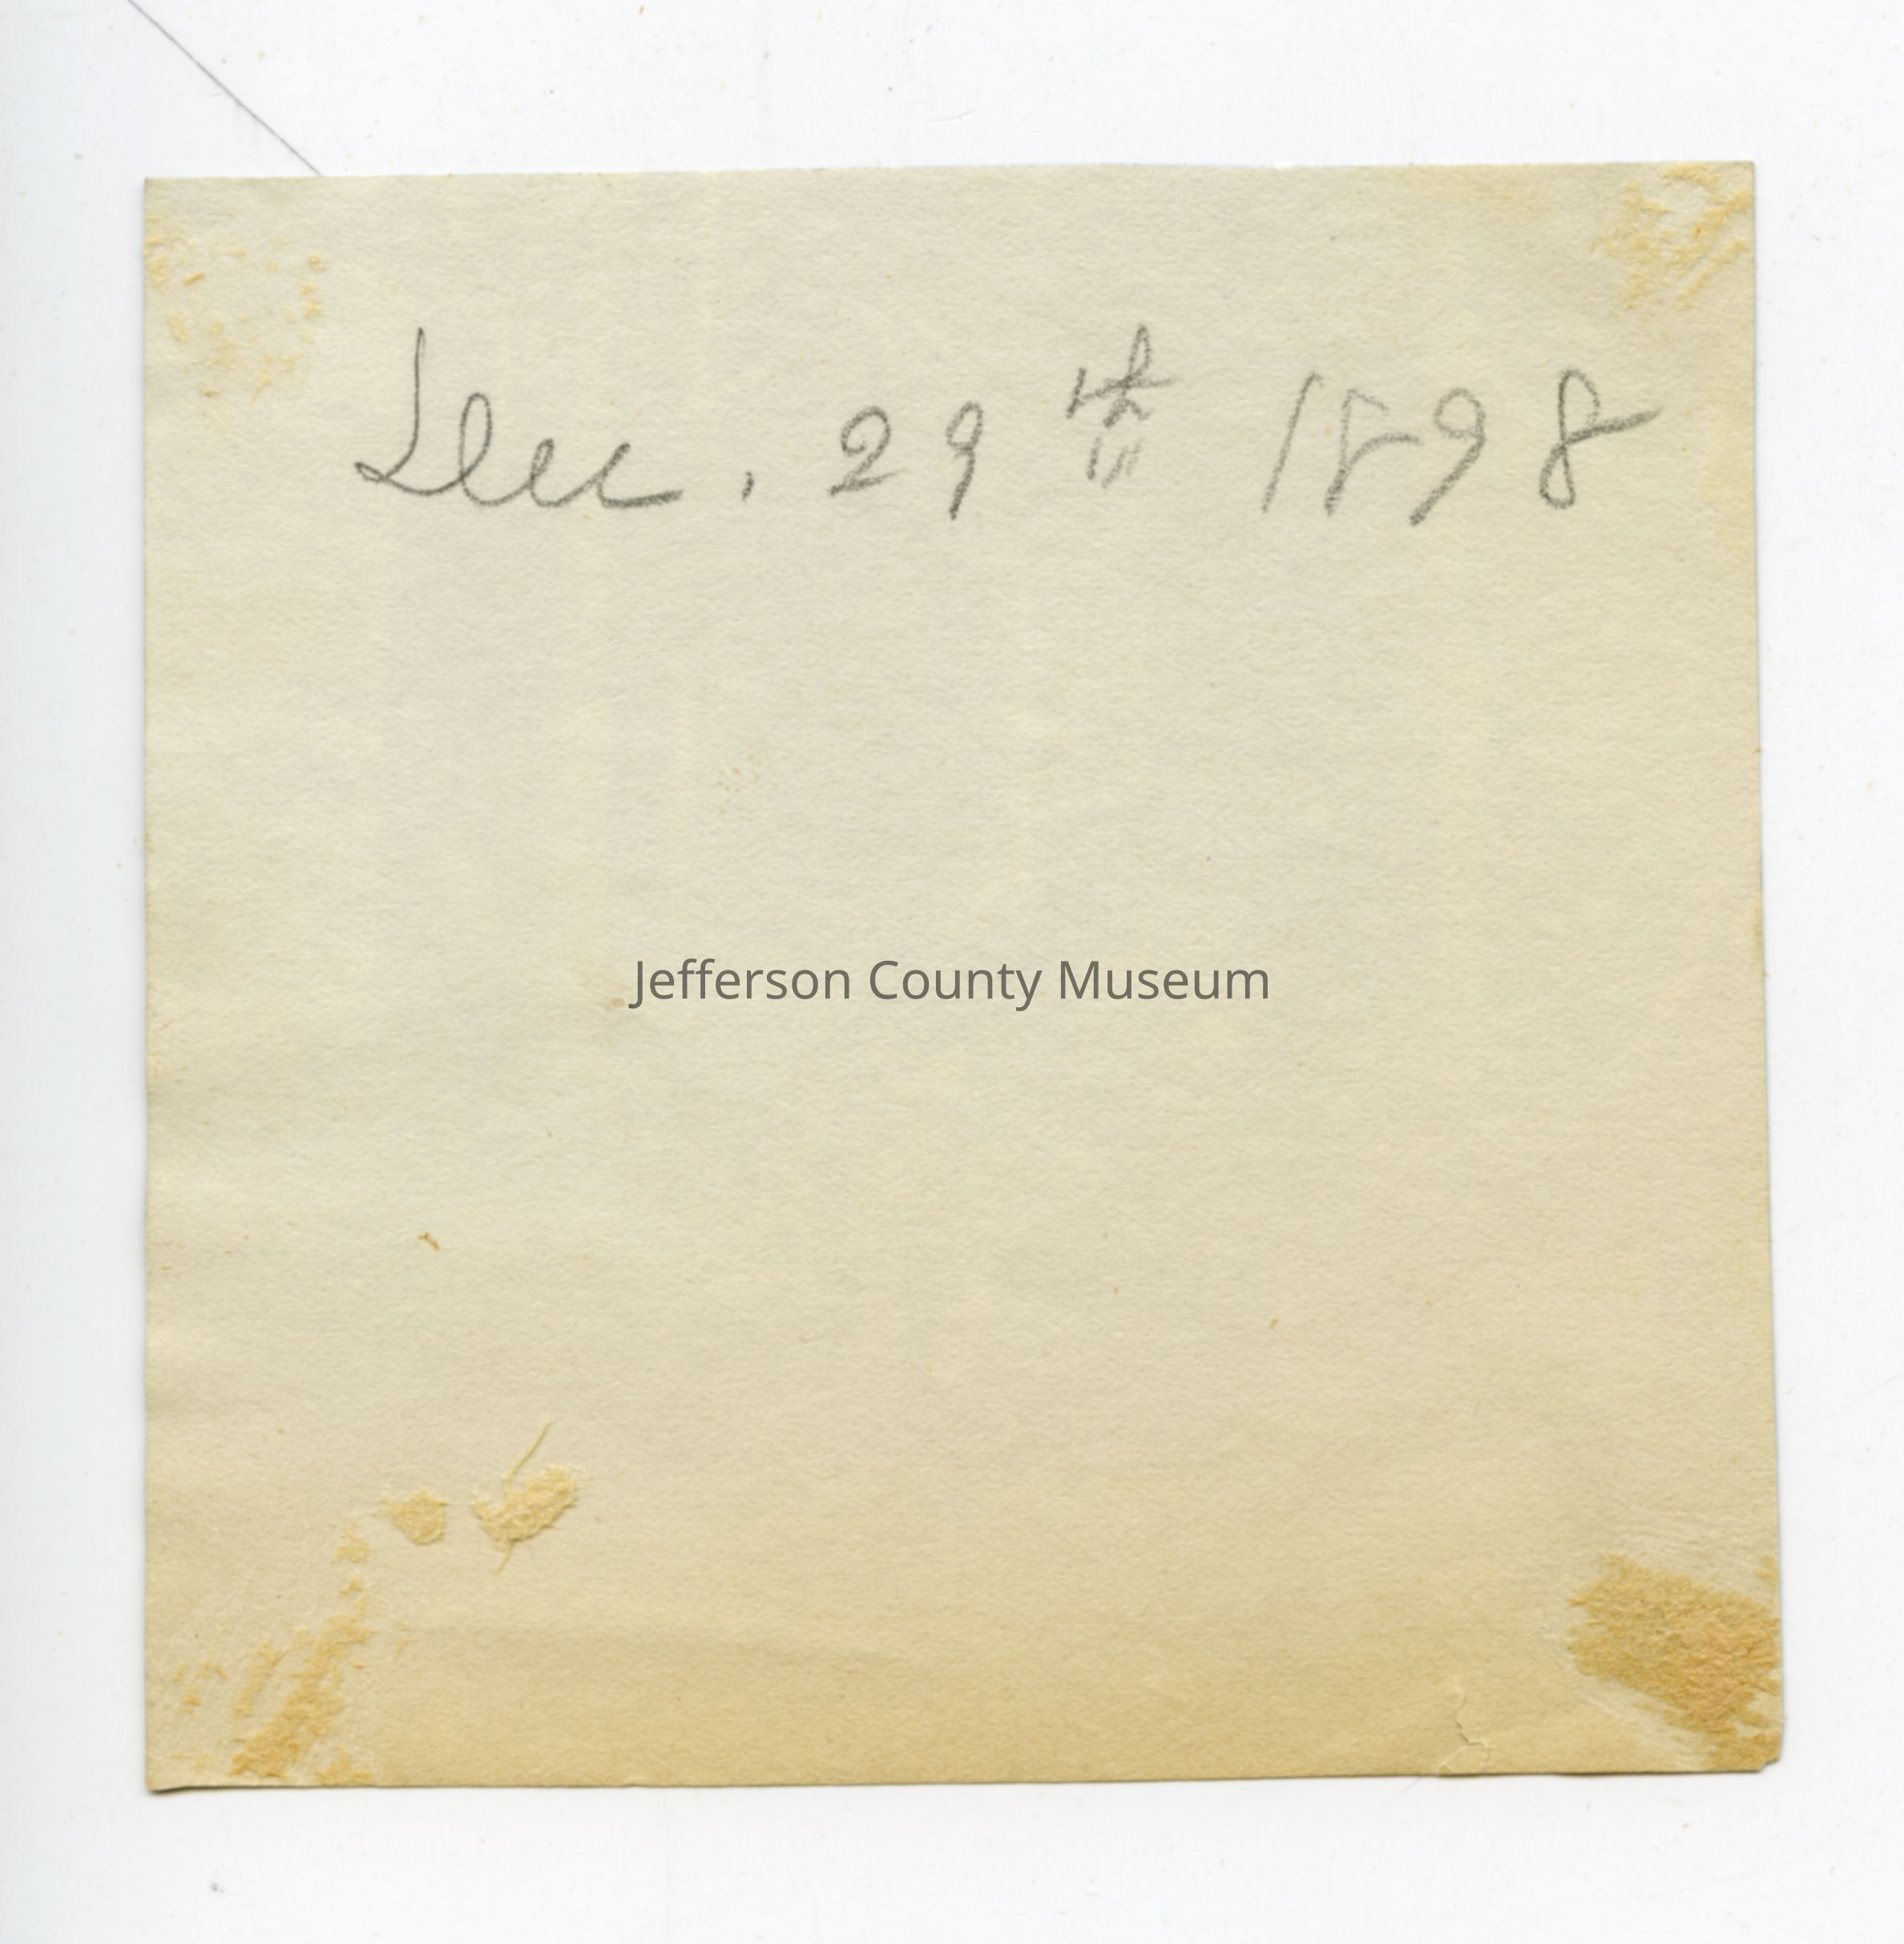 Dec. 29th 1898
Jefferson County Museum